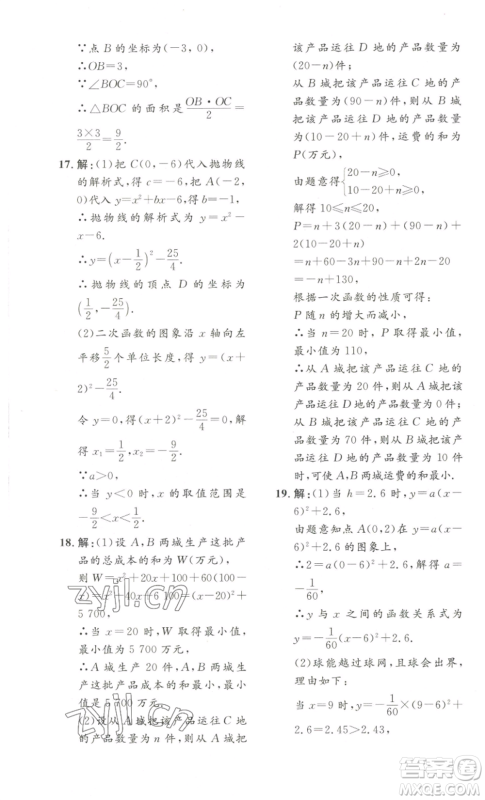 ∵点 B 的坐标为(-3, 0),
∴OB=3,
∵∠BOC=90°,
∴△BOC 的面积是 OB·OC/2 =
3×3/2=9/2.
17. 解:(1)把 C(0,-6)代入抛物线
的解析式,得 c=-6,把 A(-2,
0)代入 y=x²+bx-6,得 b=-1,
∴抛物线的解析式为 y=x²-
x-6.
∴y=(x-1/2)²-25/4.
∴抛物线的顶点 D 的坐标为
(1/2,-25/4).
(2)二次函数的图象沿 x 轴向左
平移5/2个单位长度,得 y=(x+
2)²-25/4.
令 y=0 得(x+2)²-25/4=0,解
得 x₁=1/2,x₂=-9/2.
∵a>0,
∴当 y<0 时,x 的取值范围是
-9/2<x<1/2.
18. 解:(1)设 A,B 两城生产这批产
品的总成本的和为 W(万元),
则 W=x²+20x+100+60(100
-x)=x²-40x+6 100=(x-20)²+
5 700,
∴当 x=20 时,W 取得最小值,
最小值为 5 700 万元,
∴A 城生产 20 件,A,B 两城生
产这批产品成本的和最小,最
小值是 5 700 万元.
(2)设从 A 城把该产品运往 C 地
的产品数量为 n 件,则从 A 城把
该产品运往 D 地的产品数量为
(20-n)件;
从 B 城把该产品运往 C 地的产
品数量为(90-n)件,则从 B 城
把该产品运往 D 地的产品数量
为(10-20+n)件,运费的和为
P(万元),
由题意得{20-n≥0,
10-20+n≥0,
解得 10≤n≤20,
P=n+3(20-n)+(90-n)+
2(10-20+n)
=n+60-3n+90-n+2n-20
=-n+130,
根据一次函数的性质可得:
P 随 n 的增大而减小,
∴当 n=20 时,P 取得最小值,
最小值为 110,
∴从 A 城把该产品运往 C 地的
产品数量为 20 件,则从 A 城把该
产品运往 D 地的产品数量为 0 件;
从 B 城把该产品运往 C 地的产品
数量为 70 件,则从 B 城把该产品
运往 D 地的产品数量为 10 件
时,可使 A,B 两城运费的和最小.
19. 解:(1)当 h=2.6 时,y=a(x-
6)²+2.6,
由题意知点 A(0,2)在 y=a(x-
6)²+2.6 的图象上,
∴2=a(0-6)²+2.6,解得 a=
-1/60,
∴y 与 x 之间的函数关系式为
y=-1/60(x-6)²+2.6.
(2)球能越过球网,球会出界.理
由如下:
当 x=9 时,y=-1/60×(9-6)²+
2.6=2.45>2.43,
zyjl.cn
zyjl.cn
答案圈
MXQE.COM